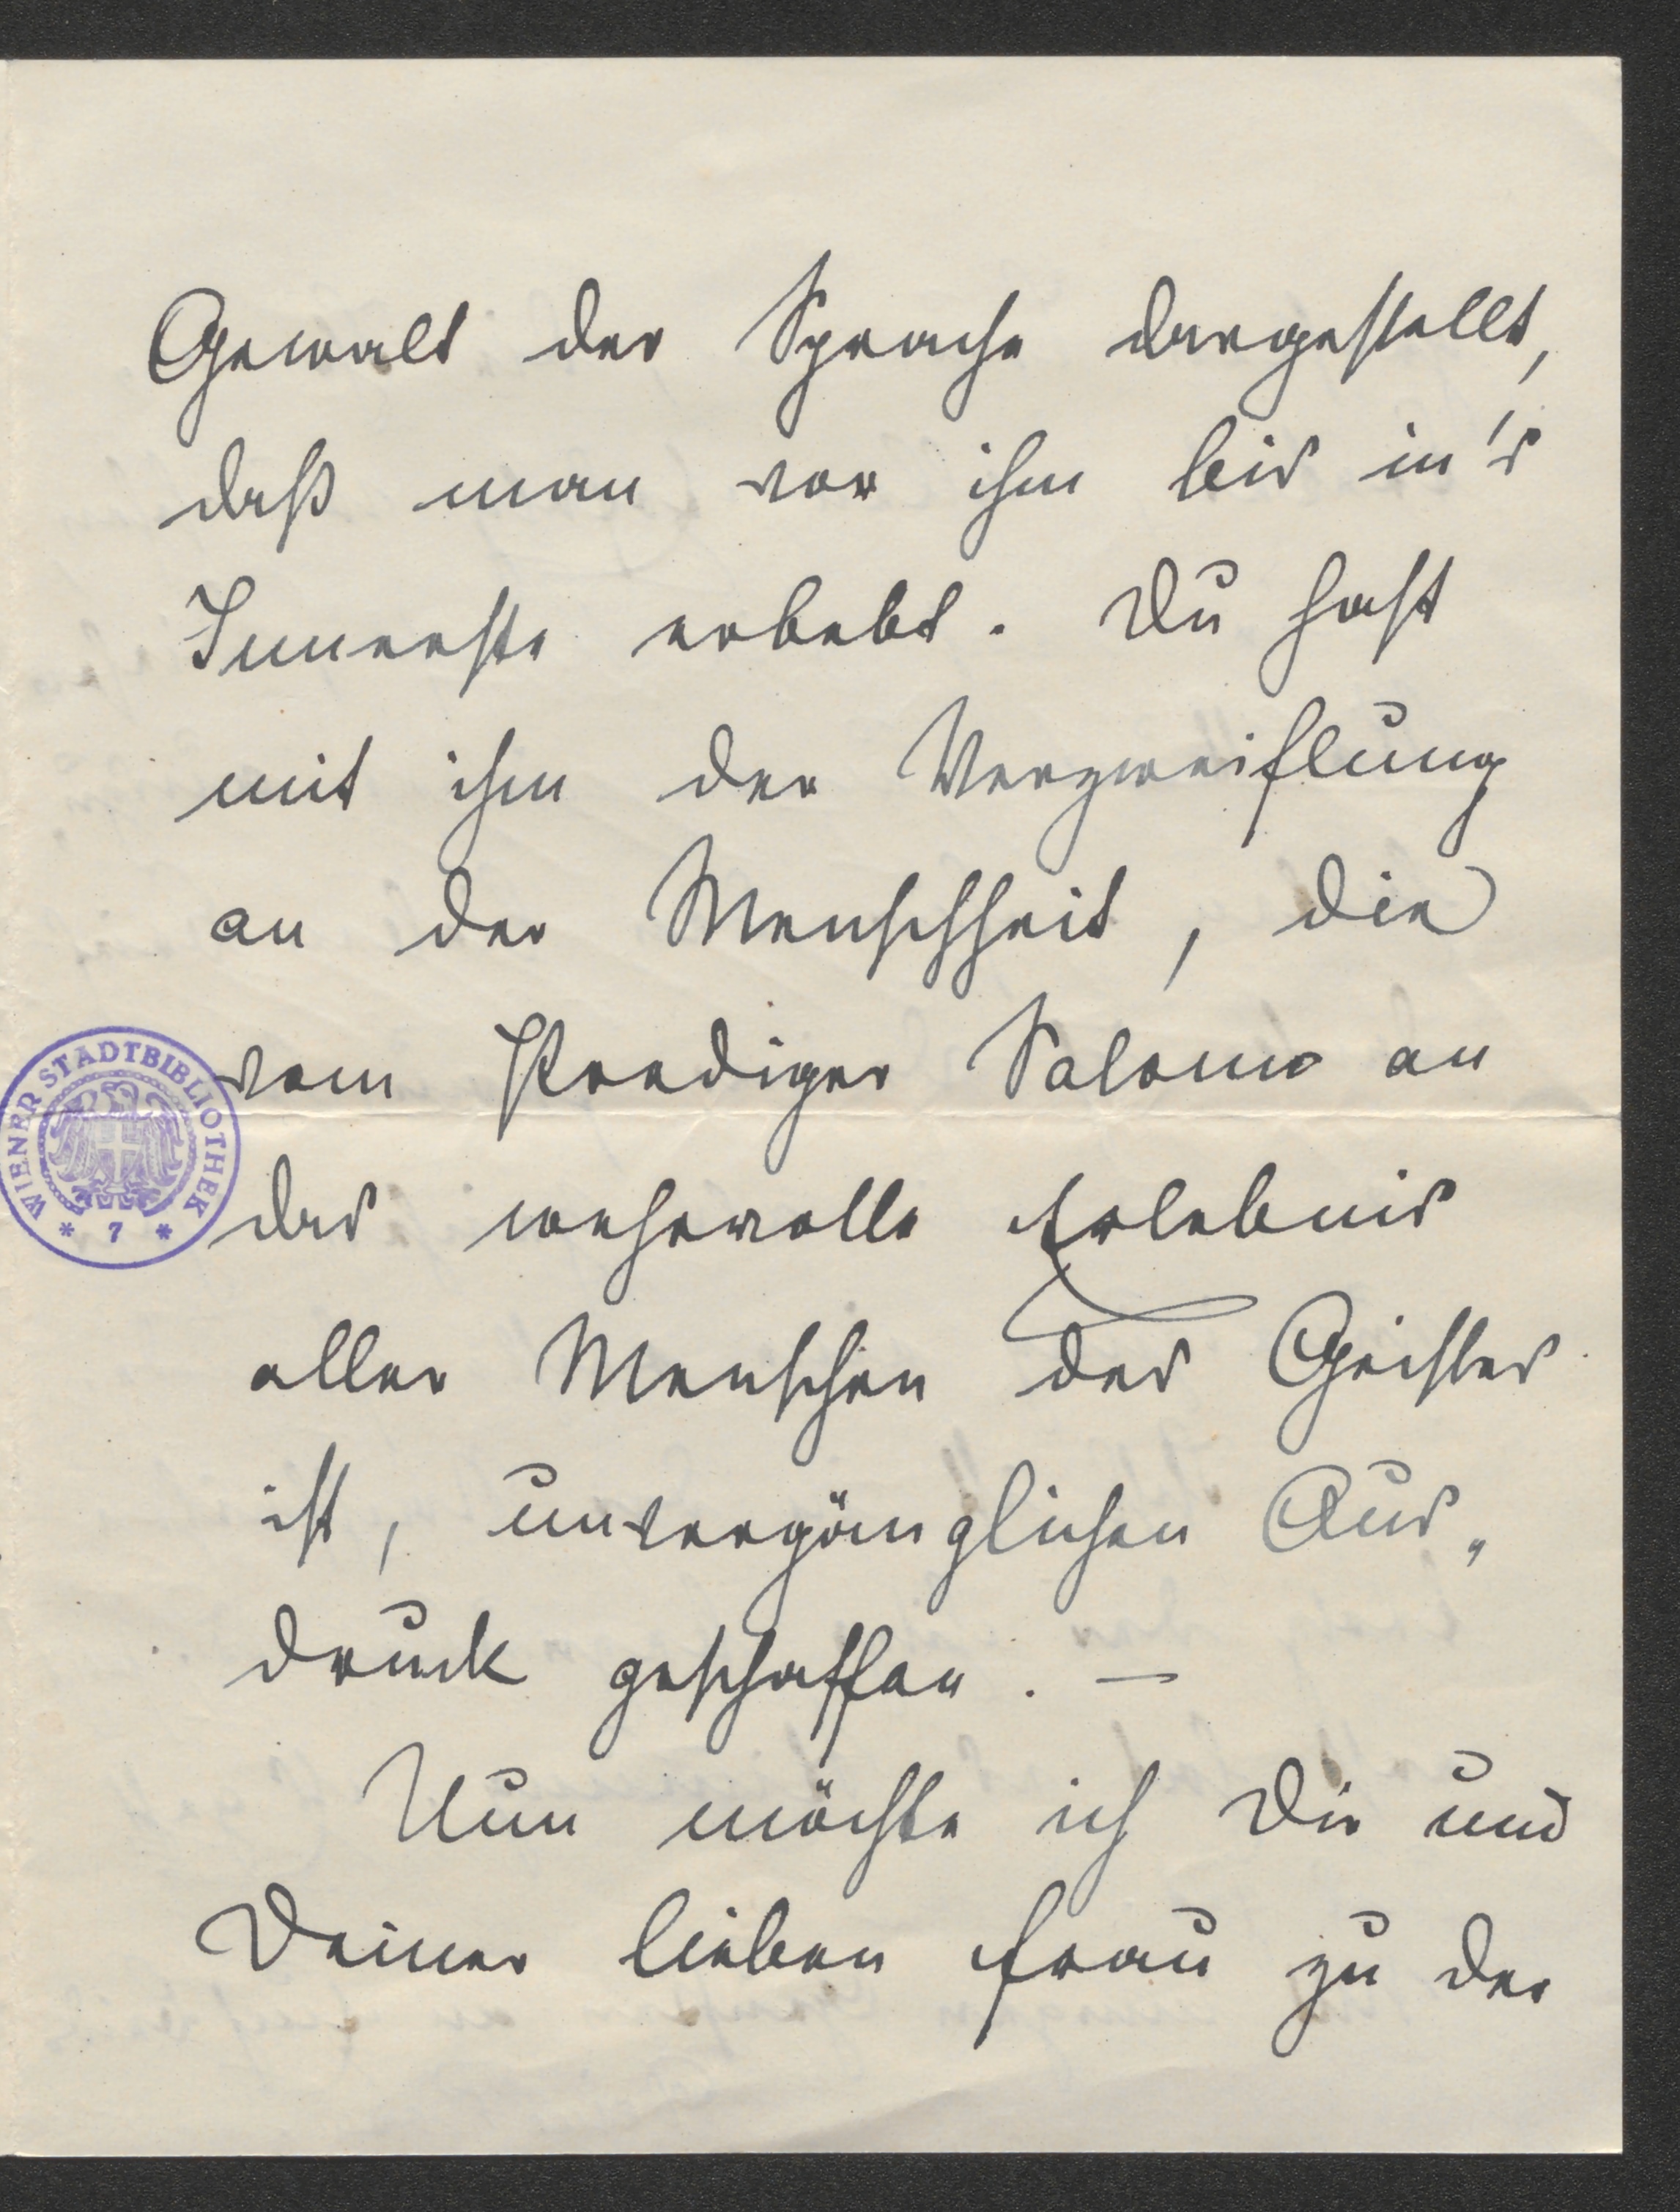 Gewalt der Sprache dargestellt,
daß man vor ihm bis in's
Innerste erbebt. Du hast
mit ihm der Verzweiflung
an der Menschheit, die
vom Prediger Salomo an
das wehevolle Erlebnis
aller Menschen des Geistes
ist, unvergänglichen Aus„
druck geschaffen. —
Nun möchte ich Dir und
Deiner lieben Frau zu der
WIENER STADTBIBLIOTHEK
* 7 *